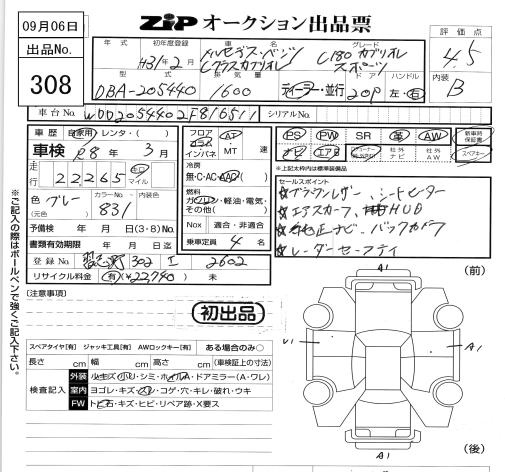 09月06日
ZIP オークション出品票
出品No.
308
年式
初年度登録
H31年2月
車名
メルセデス・ベンツ
Cクラスカブリオレ
グレード
C180 カブリオレ
スポーツ
評価点
4.5
型式
DBA-205440
排気量
1600
ディーラー・並行
ドア
2DP
ハンドル
左・右
内装
B
車台No.
WDD2054402F816511
シリアルNo.
車歴
自家用・レンタ・( )
車検
R8年3月
走行
22265
キロ
マイル
色
グレー
(元色)
カラーNo・
831
予備検 年 月 日(3・8)No.
書類有効期限 年 月 日迄
登録No.
習志野 302 I 2602
リサイクル料金 (有)(¥22,740) 未
フロア
コラム
インパネ
AT
・
MT 速
冷房
無・C・AC・AAC
燃料
ガソリン・軽油・電気・
その他( )
Nox 適合・非適合
乗車定員 4 名
PS PW SR 革 AW
ナビ エアB 社外ナビ 社外AW
新車時保証書
スペアキー
※上記太枠内は標準装備品
セールスポイント
☆ブラウンレザー、シートヒーター
☆エアスカーフ、HUD
☆純正ナビ、バックカメラ
☆レーダーセーフティ
※ご記入の際はボールペンで強くご記入下さい。
(注意事項)
初出品
スペアタイヤ[有] ジャッキ工具[有] AWロックキー[有] ある場合のみ○
長さ cm 幅 cm 高さ cm (車検証上の寸法)
検査記入
外装 少キズ・小U・シミ・ホイルA・ドアミラー(A・ワレ)
室内 ヨゴレ・キズ・スレ・コゲ・穴・キレ・破れ・ウキ
FW トビ石・キズ・ヒビ・リペア跡・X要ス
(前)
A1
U1
A1
A1
(後)